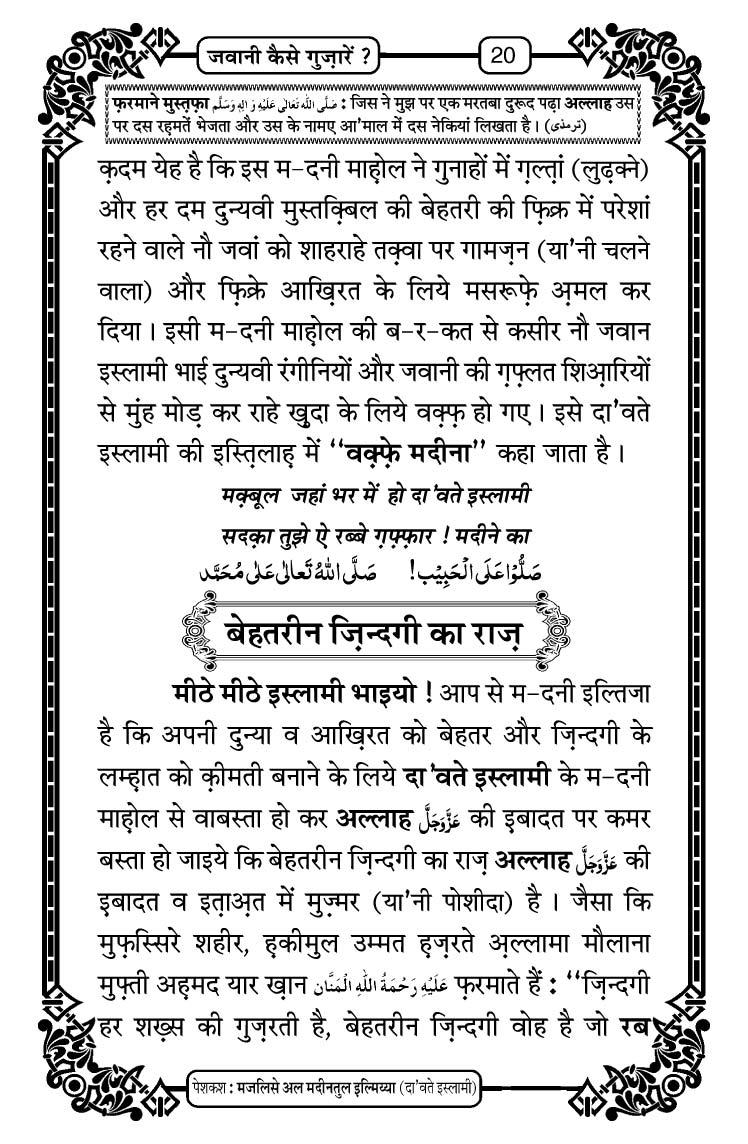 जवानी कैसे गुज़ारें ?
20
फ़रमाने मुस्त़फ़ा صَلَّى اللّٰهُ تَعَالٰى عَلَيْهِ وَاٰلِهٖ وَسَلَّم : जिस ने मुझ पर एक मरतबा दुरूद पढ़ा अल्लाह उस
पर दस रह़मतें भेजता और उस के नामए आ'माल में दस नेकियां लिखता है । (ترمذی)
क़दम येह है कि इस म-दनी माह़ोल ने गुनाहों में ग़ल्त़ां (लुढ़क्ने)
और हर दम दुन्यवी मुस्तक़्बिल की बेहतरी की फ़िक्र में परेशां
रहने वाले नौ जवां को शाहराहे तक़्वा पर गामज़न (या'नी चलने
वाला) और फ़िक्रे आख़िरत के लिये मसरूफ़े अ़मल कर
दिया । इसी म-दनी माह़ोल की ब-र-कत से कसीर नौ जवान
इस्लामी भाई दुन्यवी रंगीनियों और जवानी की ग़फ़्लत शिआ़रियों
से मुंह मोड़ कर राहे ख़ुदा के लिये वक़्फ़ हो गए । इसे दा'वते
इस्लामी की इस्त़िलाह़ में ‘‘वक़्फ़े मदीना’’ कहा जाता है ।
मक़्बूल जहां भर में हो दा'वते इस्लामी
सदक़ा तुझे ऐ रब्बे ग़फ़्फ़ार ! मदीने का
صَلُّوْا عَلَى الْحَبِيْب! صَلَّى اللّٰهُ تَعَالٰى عَلٰى مُحَمَّد
बेहतरीन ज़िन्दगी का राज़
मीठे मीठे इस्लामी भाइयो ! आप से म-दनी इल्तिजा
है कि अपनी दुन्या व आख़िरत को बेहतर और ज़िन्दगी के
लम्ह़ात को क़ीमती बनाने के लिये दा'वते इस्लामी के म-दनी
माह़ोल से वाबस्ता हो कर अल्लाह عَزَّوَجَلَّ की इबादत पर कमर
बस्ता हो जाइये कि बेहतरीन ज़िन्दगी का राज़ अल्लाह عَزَّوَجَلَّ की
इ़बादत व इत़ाअ़त में मुज़्मर (या'नी पोशीदा) है । जैसा कि
मुफ़स्सिरे शहीर, ह़कीमुल उम्मत ह़ज़रते अ़ल्लामा मौलाना
मुफ़्ती अह़मद यार ख़ान عَلَيْهِ رَحْمَةُ اللّٰهِ الْمَنَّان फ़रमाते हैं : ‘‘ज़िन्दगी
हर शख़्स की गुज़रती है, बेहतरीन ज़िन्दगी वोह है जो रब
पेशकश : मजलिसे अल मदीनतुल इल्मिय्या (दा'वते इस्लामी)